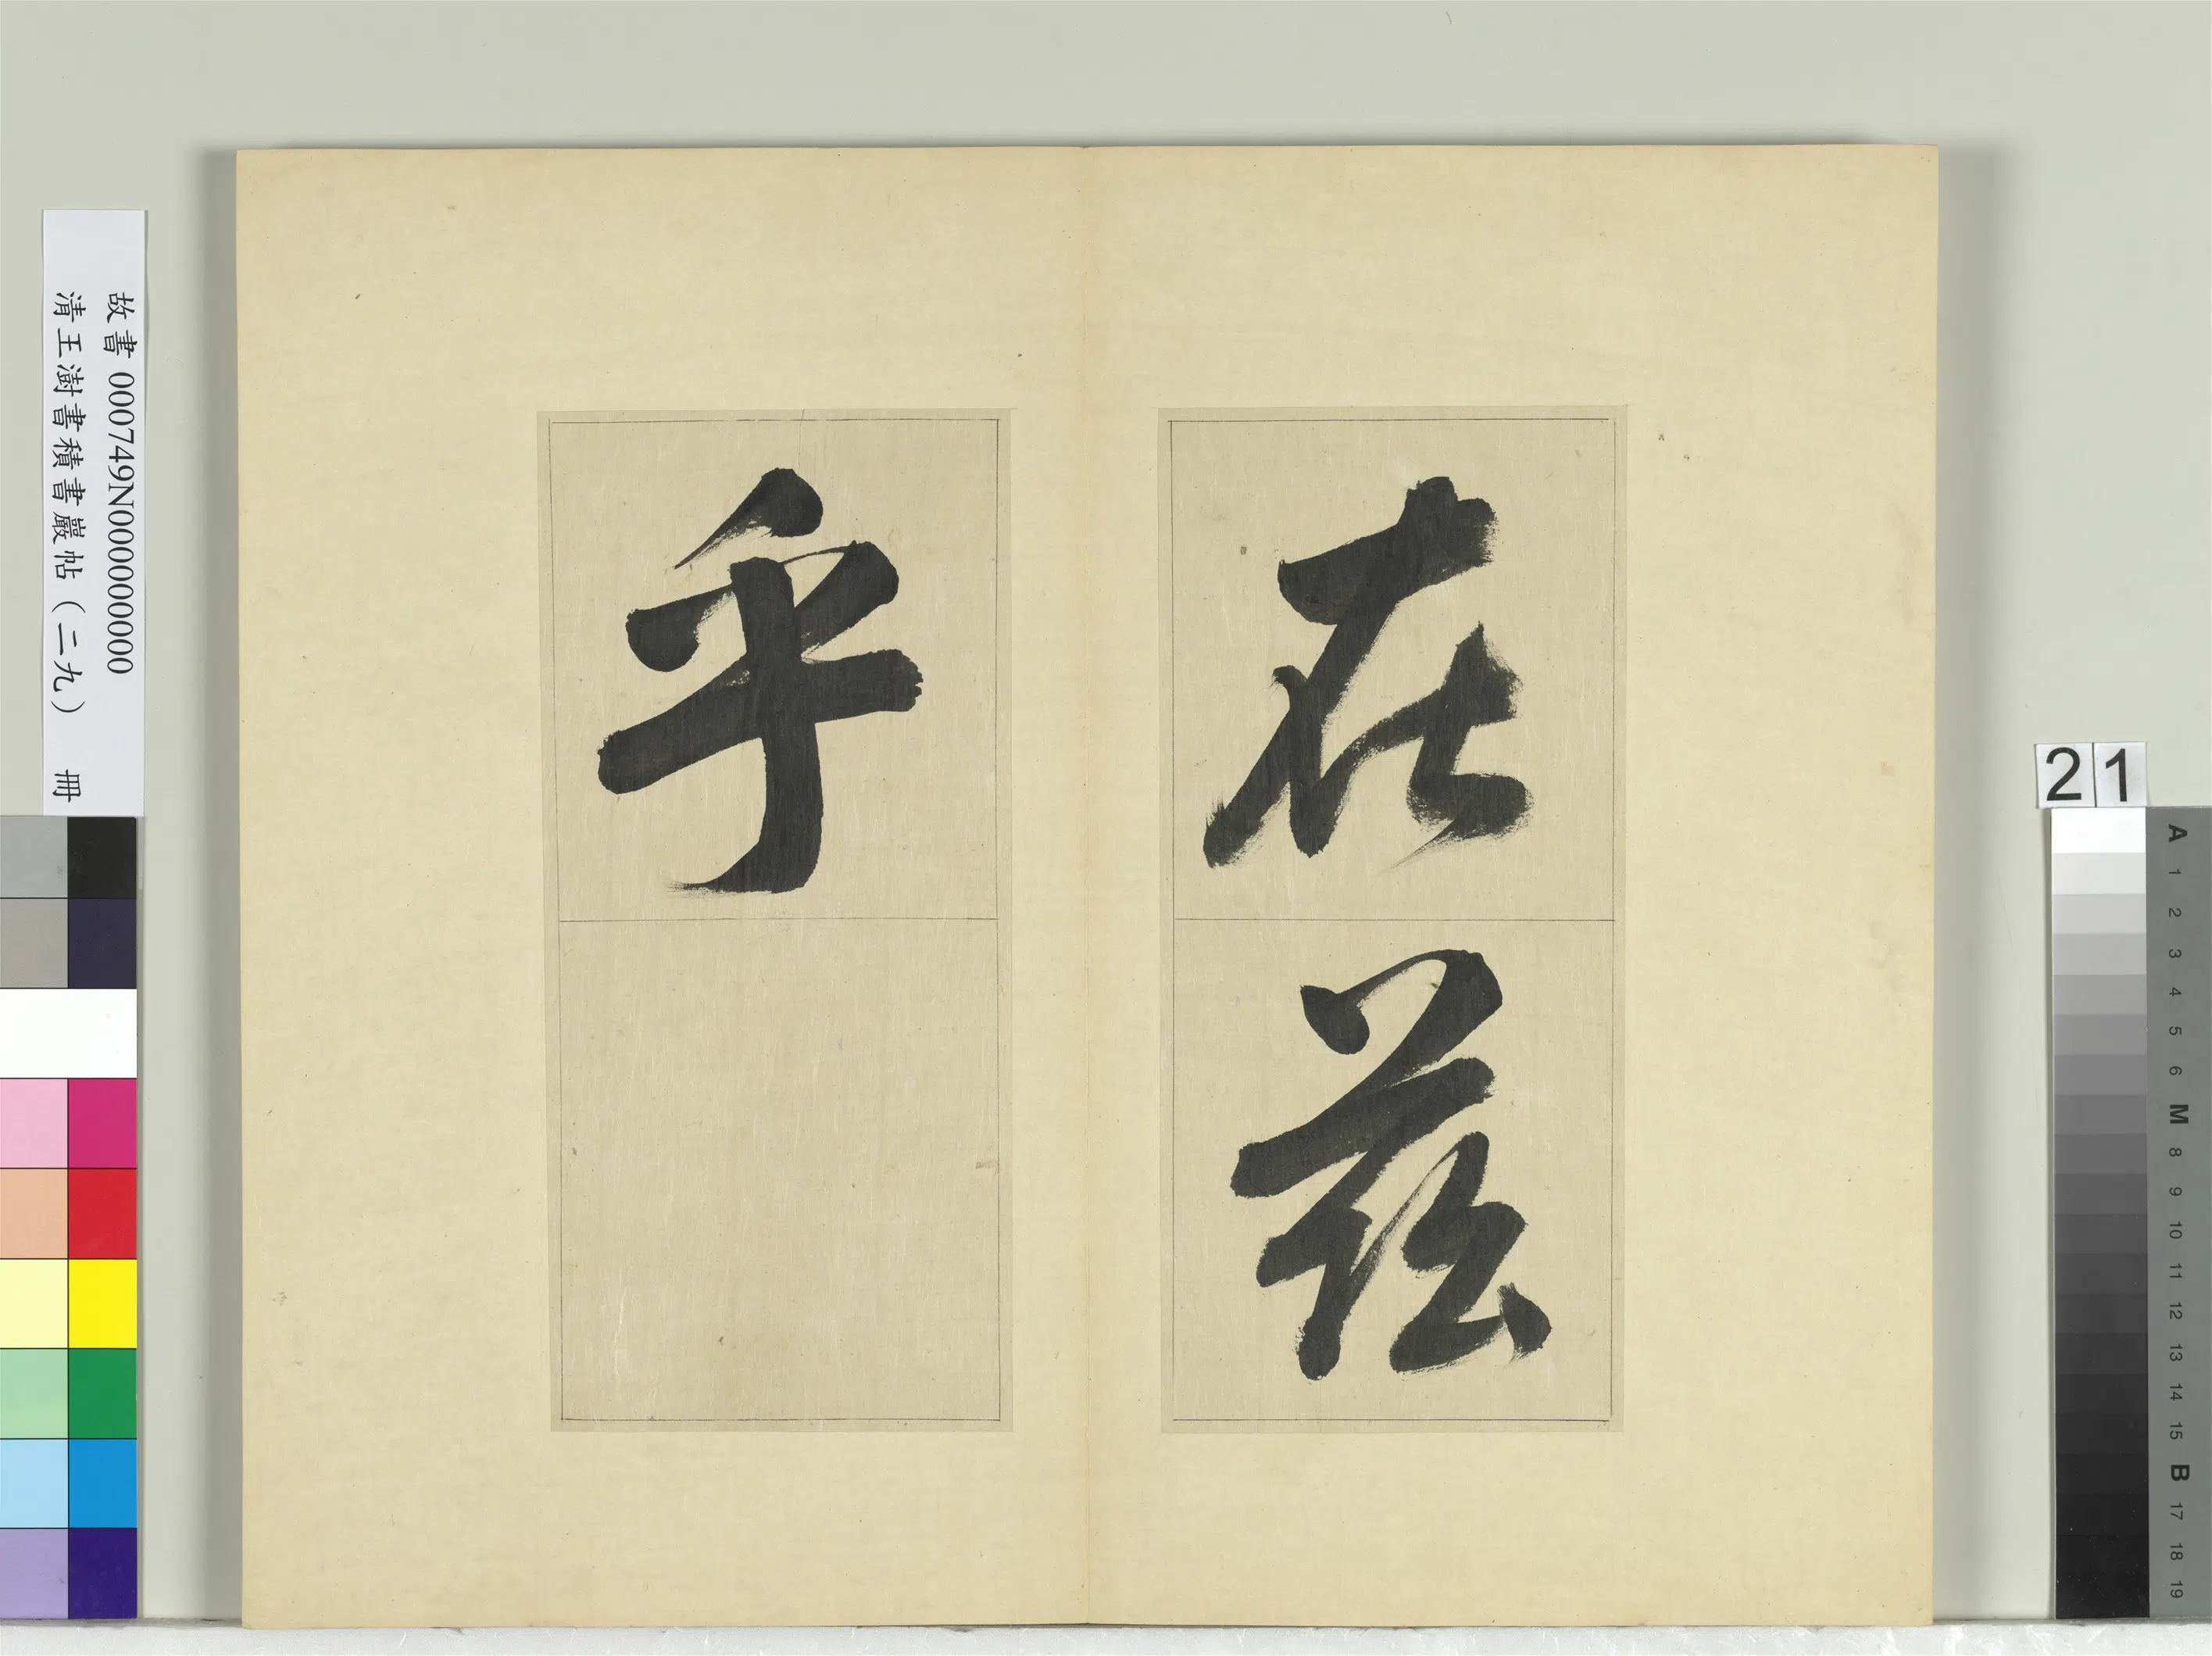 在茲
乎
故書 000749N000000000
清王澍書積書嚴帖（二九） 冊
21
A
1
2
3
4
5
6
M
8
9
10
11
12
13
14
15
B
17
18
19